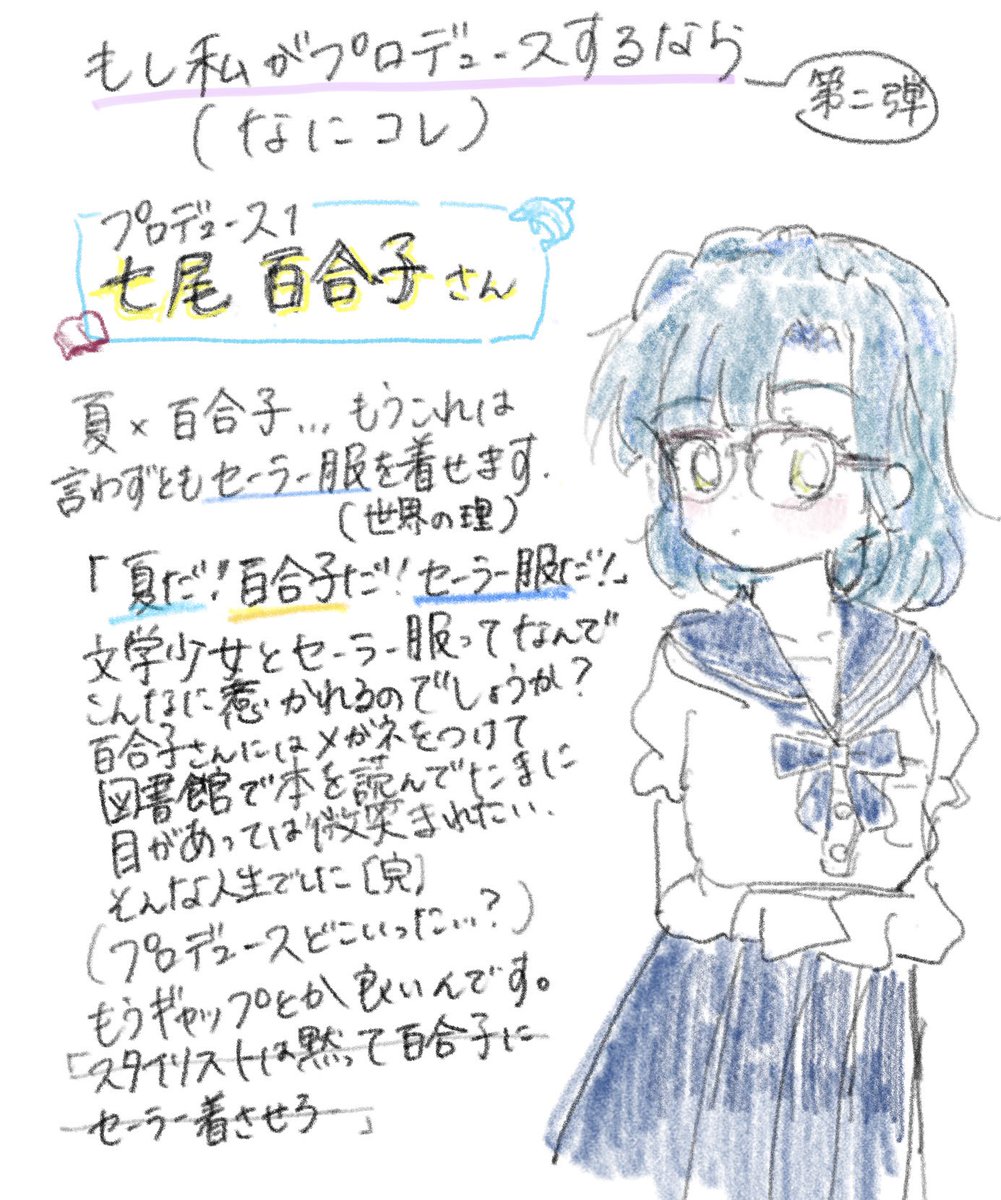 もし私がプロデュースするなら
第二弾
(なにコレ)
プロデュース1
七尾 百合子さん
夏×百合子... もうこれは
言わずともセーラー服を着せます.
(世界の理)
「夏だ!百合子だ!セーラー服だ!」
文学少女とセーラー服ってなんで
こんなに惹かれるのでしょうか?
百合子さんにはメガネをつけて
図書館で本を読んでたまに
目があっては微笑まれたい.
そんな人生でした[完]
(プロデュースどこいった...?)
もうギャップとか良いんです。
「スタイリストは黙って百合子に
セーラー着させろ」